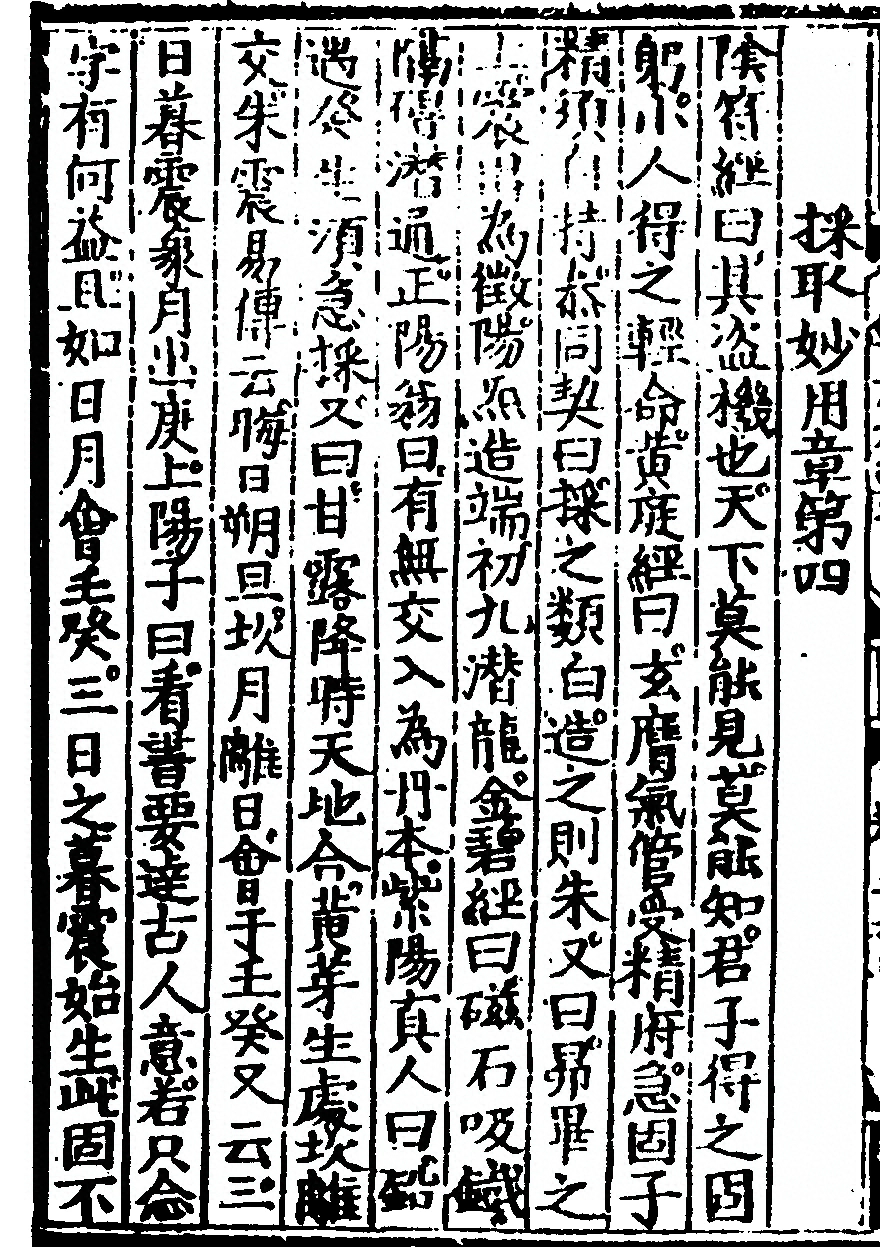 採取妙用章第四
陰符經曰其盜機也天下莫能見莫能知君子得之固
躬小人得之輕命黃庭經曰玄膺氣管受精府急固子
精須自持參同契曰採之類白造之則朱又曰昴畢之
上震出為徵陽炁造端初九潛龍金碧經曰磁石吸鐵
隔碍潛通正陽翁曰有無交入為丹本紫陽真人曰鉛
遇癸生須急採又曰甘露降時天地合黃芽生處坎離
交朱震易傳云晦日朔旦坎月離日會于壬癸又云三
日暮震象月出庚上陽子曰看書要達古人意若只念
字有何益且如日月會壬癸三日之暮震始生此固不